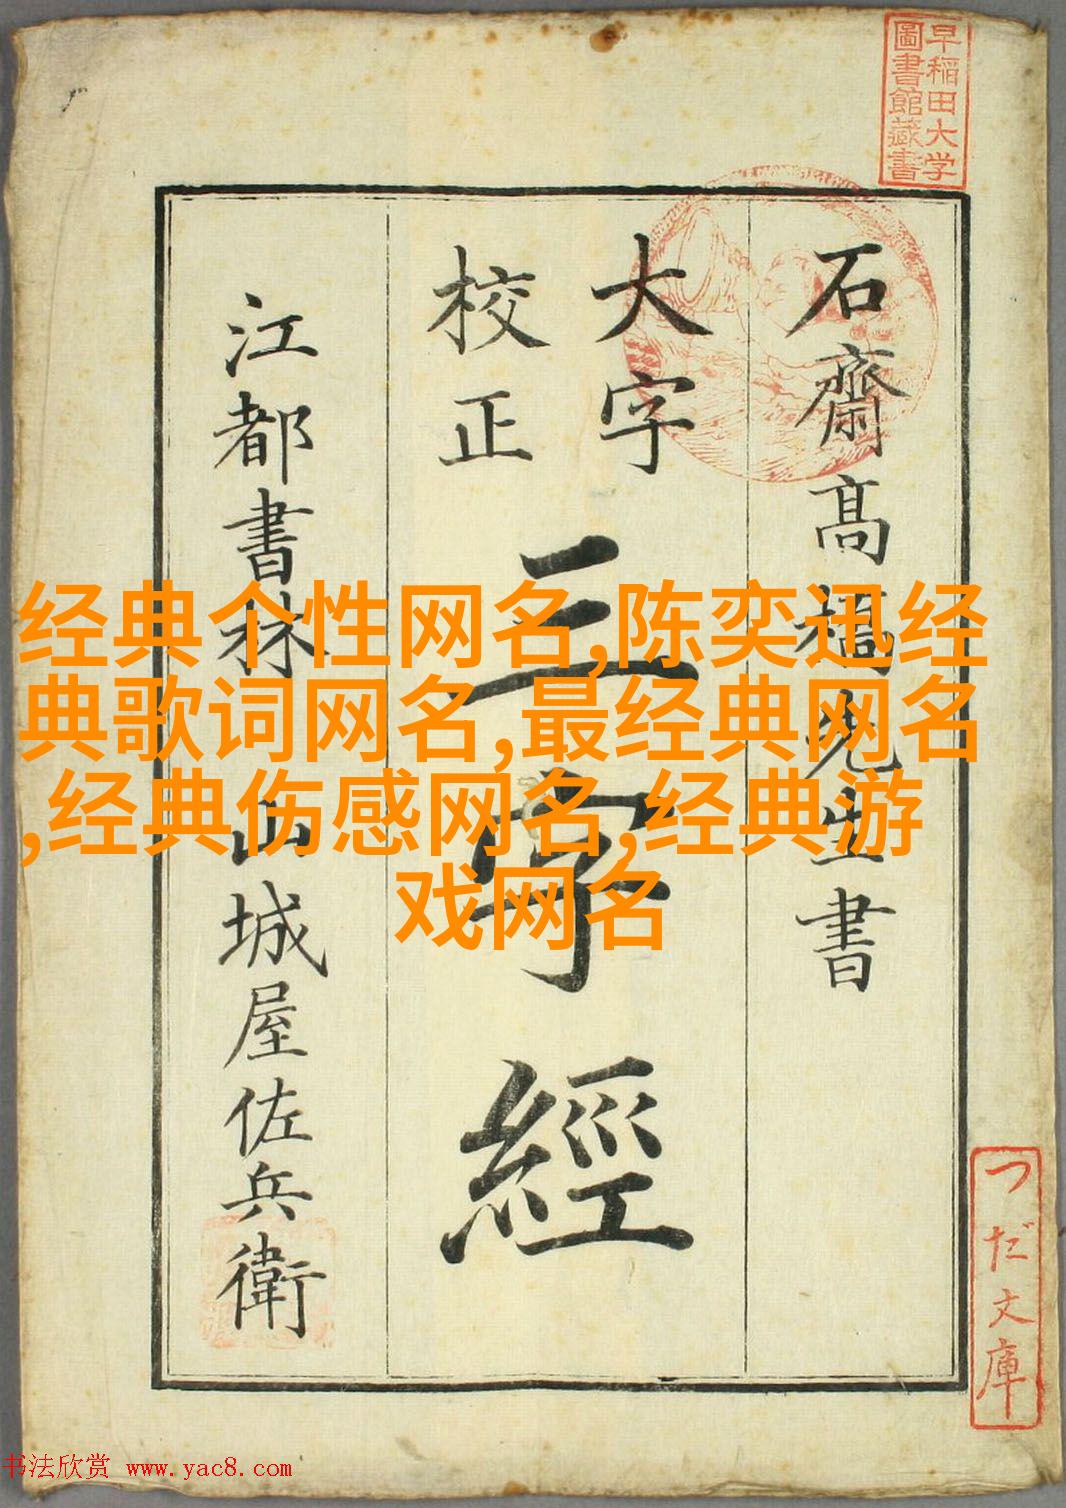 早稲田大学
圖書館藏書
石齋髙橋先生書
大字
校正
三字經
江都書林
山城屋佐兵衛
つだ文庫
经典个性网名,陈奕迅经
典歌词网名,最经典网名
,经典伤感网名,经典游
戏网名
书法欣赏 www.yac8.com